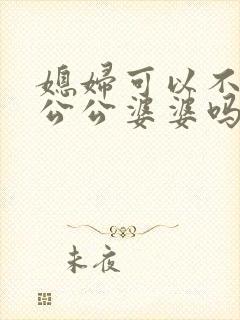 媳婦可以不
公公婆婆吗
未夜